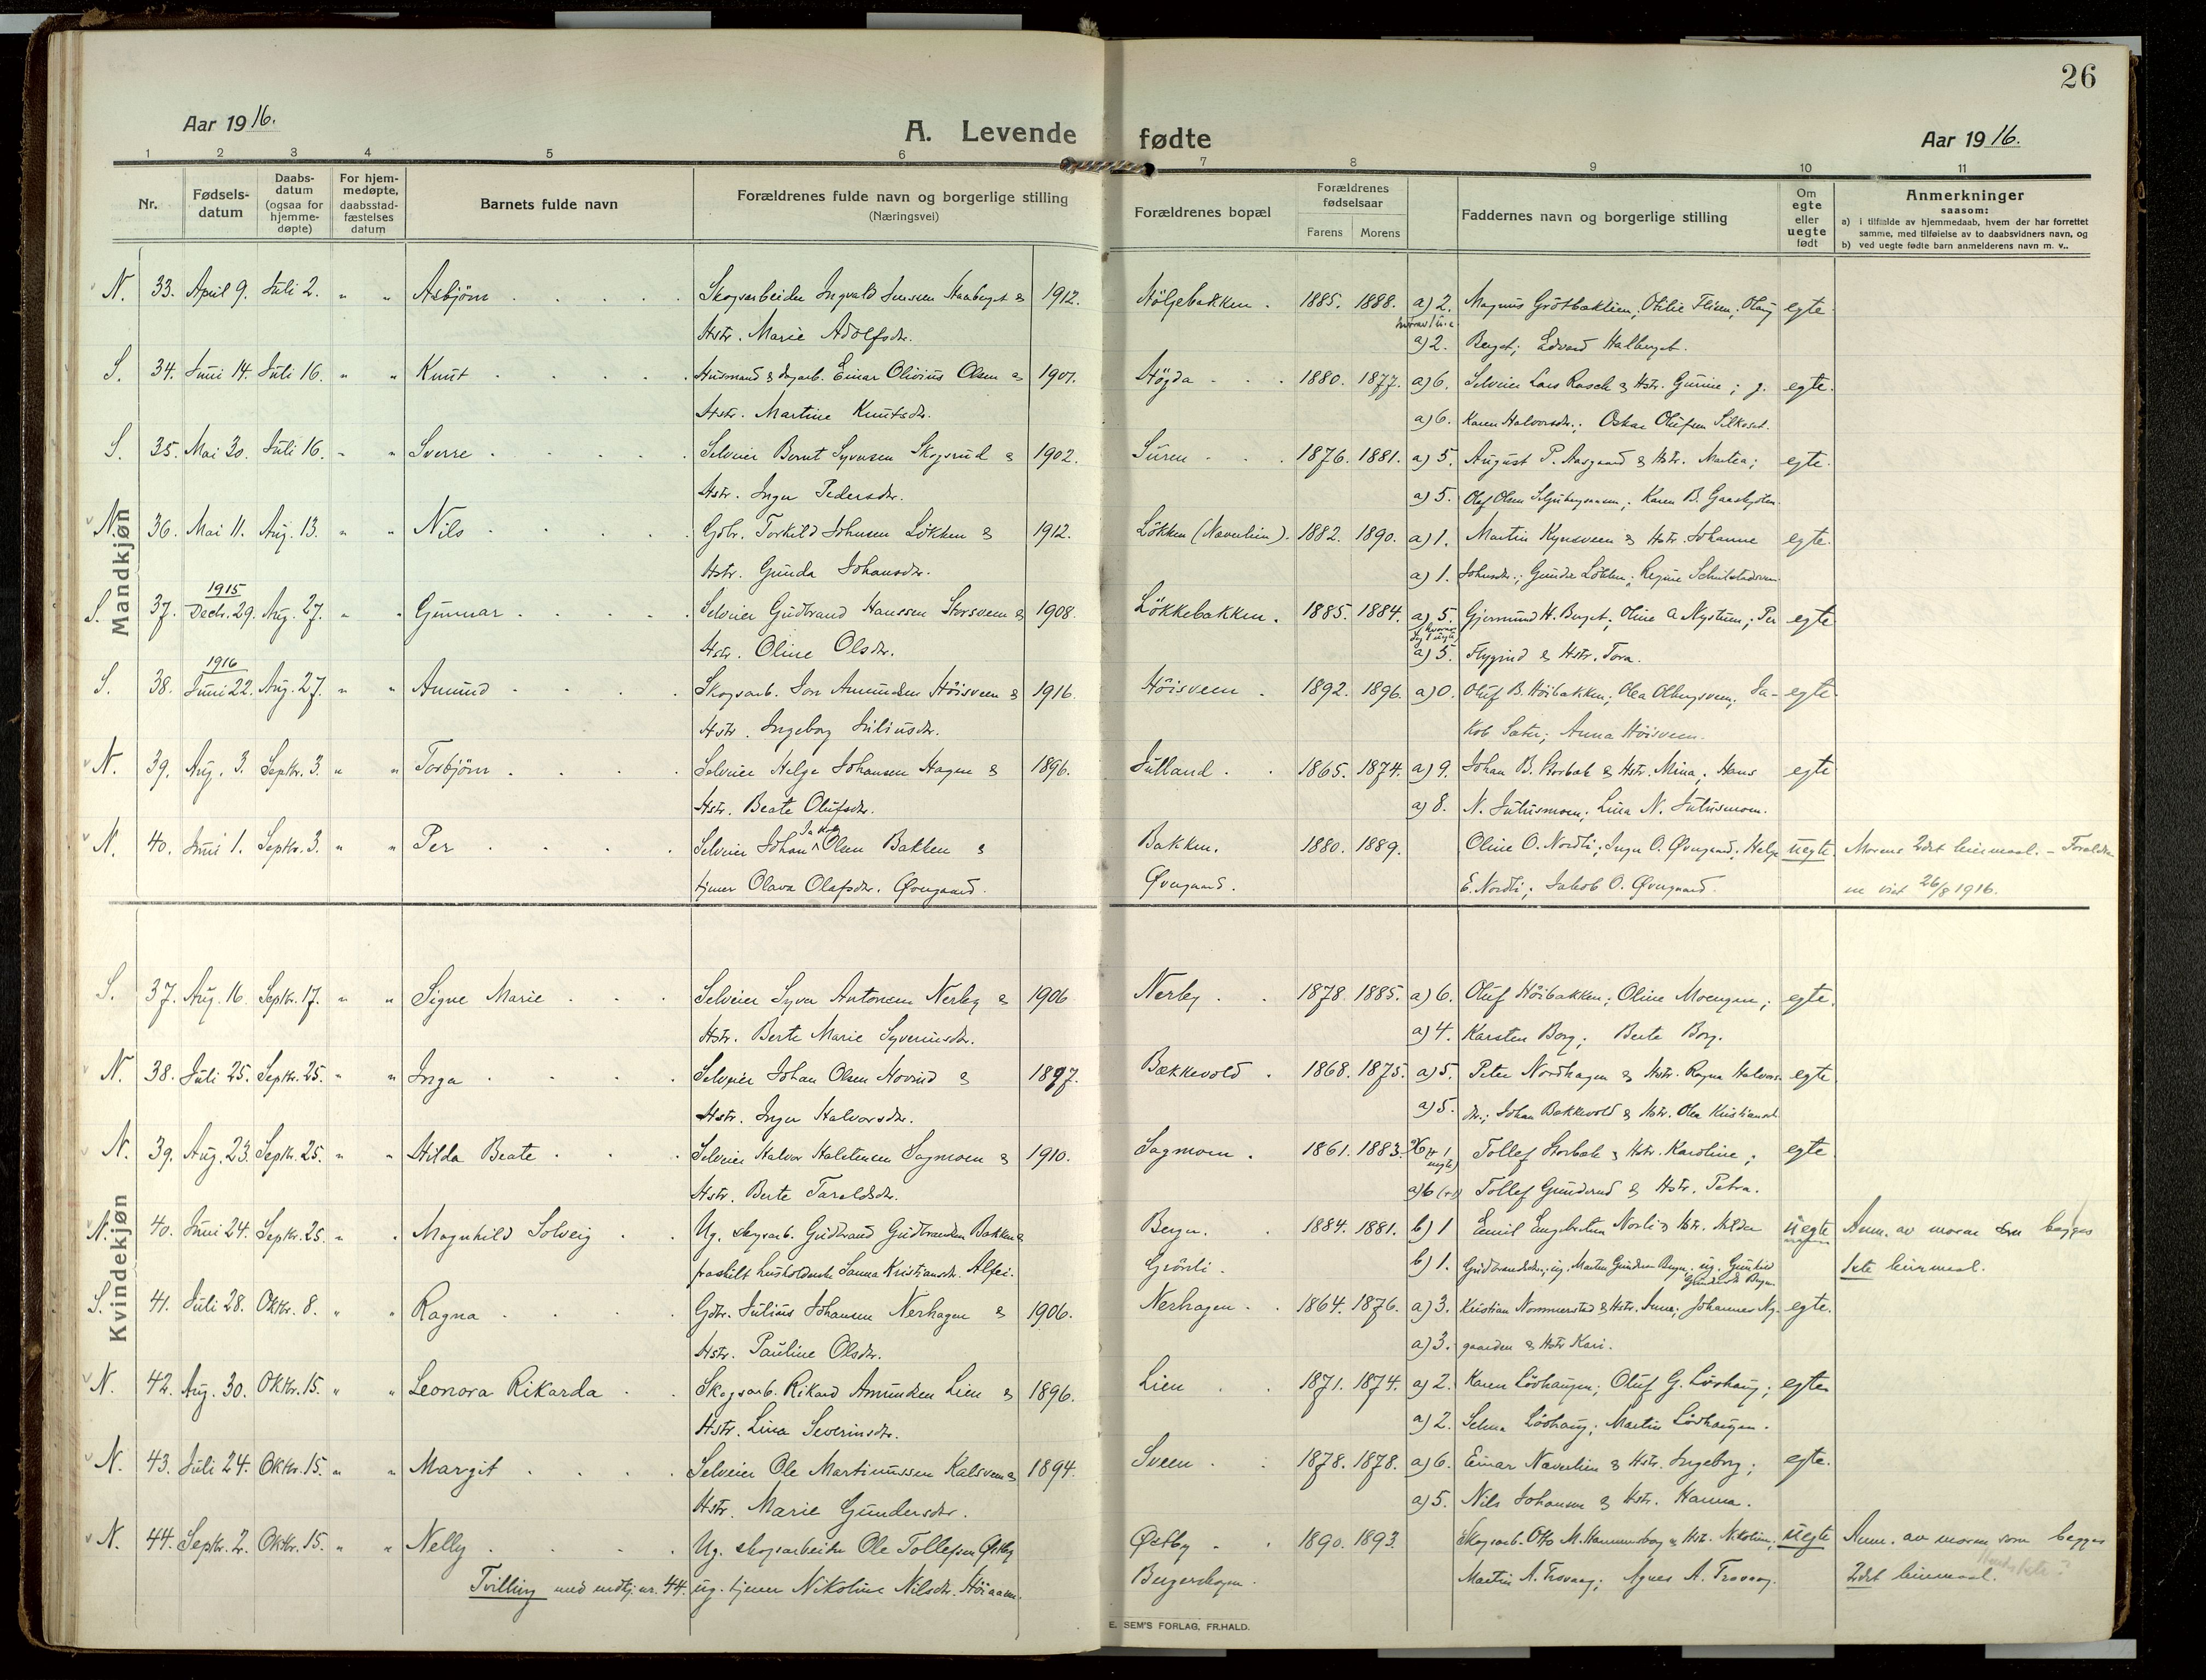 26
Aar 1916.
A. Levende fødte
Aar 1916.
1 2 3 4 5 6 7 8 9 10 11
Nr.
Fødsels-
datum
Daabs-
datum
(ogsaa for
hjemme-
døpte)
For hjem-
medøpte,
daabsstad-
fæstelses
datum
Barnets fulde navn
Forældrenes fulde navn og borgerlige stilling
(Næringsvei)
Forældrenes bopæl
Forældrenes
fødselsaar
Farens Morens
Faddernes navn og borgerlige stilling
Om
egte
eller
uegte
født
Anmerkninger
saasom:
a) i tilfælde av hjemmedaab, hvem der har forrettet
samme, med tilføielse av to daabsvidners navn, og
b) ved uegte fødte barn anmelderens navn m. v..
Mandkjøn
N. 33. April 9. Juli 2. " " Asbjørn Skogsarbeider Ingvald Jensen & 1912. 1885. 1888. a) 2. egte
Hstr. Marie Adolfsdr. a) 2. Berget; Edvard Halberget.
S. 34. Juni 14. Juli 16. " " Knut Husmand & dagarb. Einar Olivius Olsen & 1907. Høgda 1880. 1877. a) 6. Selveier Lars Rasch & Hstr. Gurine; egte.
Hstr. Martine Knutsdr. a) 6. Karen Halvorsdr.; Oskar Olufsen Silkeset.
S. 35. Mai 30. Juli 16. " " Sverre Selveier Bernt Syversen Skogsrud & 1902. Suren 1876. 1881. a) 5. August P. Aasgaard & Hstr. Martea; egte.
Hstr. Inger Pedersdr. a) 5. Olaf Olsen Karen B.
N. 36. Mai 11. Aug. 13. " " Nils Gdbr. Torkild Johnsen Løkken & 1912. Løkken (Naverlien). 1882. 1890. a) 1. Martin Kynsveen & Hstr. Johanne egte.
Hstr. Gunda Johansdr. a) 1. Johnsdr.; Gunda Løkken; Regine
1915
S. 37. Decbr. 29. Aug. 27. " " Gunnar Selveier Gudbrand Hanssen Storsveen & 1908. Løkkebakken. 1885. 1884. a) 5. Gjermund H. Berget; Oline A. Nystuen; Per egte
Hstr. Oline Olsdr. a) 5. Flygind & Hstr. Tora.
1916
S. 38. Juni 22. Aug. 27. " " Amund Skogsarb. Jon Amundsen Høisveen & 1916. Høisveen 1892. 1896. a) 0. Oluf B. Høibakken; Olea Olbergsveen; Ja- egte
Hstr. Ingeborg Juliusdr. kob Sater; Anna Høisveen.
N. 39. Aug. 3. Septbr. 3. " " Torbjørn Selveier Helge Johansen Hagen & 1896. Julland 1865. 1874. a) 9. Johan B. Storbak & Hstr. Mina; Hans egte
Hstr. Beate Olufsdr. a) 8. N. Julusmoen; Lina N. Julusmoen.
N. 40. Juni 1. Septbr. 3. " " Per Selveier Johan Jakob Olsen Bakken & Bakken. 1880. 1889. Oline O. Nordli; Inger O. Øvergaard; Helge uegte. Morens 2det leiermaal. - Foreldre
tjener Olava Olafsdr. Øvergaard. Øvergaard. E. Nordli; Jakob O. Øvergaard. ne viet 26/8 1916.
Kvindekjøn
S. 37. Aug. 16. Septbr. 17. " " Signe Marie Selveier Syver Antonsen Nerby & 1906 Nerby 1878. 1885. a) 6. Oluf Høibakken; Oline Moengen; egte.
Hstr. Berte Marie Syverinsdr. a) 4. Karsten Borg; Berte Borg.
N. 38. Juli 25. Septbr. 25. " " Inga Selveier Johan Olsen Hovrud & 1897. Bækkevold 1868. 1875. a) 5. Peter Nordhagen & Hstr. Ragna Halvors- egte
Hstr. Inger Halvorsdr. a) 5. dr.; Johan Bækkevold & Hstr. Olea Kristiansdr.
N. 39. Aug. 23. Septbr. 25. " " Hilda Beate Selveier Halvor Halstensen Sagmoen & 1910. Sagmoen. 1861. 1883. Tollef Storbæk & Hstr. Karoline; egte
Hstr. Berte Taraldsdr. a) 6 (+1) Tollef Gunderud & Hstr. Petra.
N. 40. Juni 24. Septbr. 25. " " Magnhild Solveig Ug. skogsarb. Gudbrand Gudbrandsen Bakken & Berger. 1884. 1881. b) 1 Emil Engebretsen Norli & Hstr. Hilda uegte Anm. av moren som begges
fraskilt husholderske Sanna Kristiansdr. Alfei. Grönli. b) 1. Gudbrandsdr.; ug. Marten Gundersen Berger; ug. Gunhild Gundersdr. Berger. 1ste leiermaal.
S. 41. Juli 28. Oktbr. 8. " " Ragna Gdbr. Julius Johansen Nerhagen & 1906. Nerhagen 1864. 1876. a) 3. Kristian Nommerstad & Hstr. Anna; Johannes Ny- egte.
Hstr. Pauline Olsdr. a) 3. gaarden & Hstr Kari.
N. 42. Aug. 30. Oktbr. 15. " " Leonora Rikarda Skogsarb. Rikard Amundsen Lien & 1896. Lien 1871. 1874. a) 2. Karen Løvhaugen; Oluf G. Løvhaug; egte
Hstr. Lina Severinsdr. a) 2. Selma Løvhaug; Martin Løvhaugen.
N. 43. Juli 24. Oktbr. 15. " " Margit Selveier Ole Martinussen Kalsveen & 1894. Sveen 1878. 1878. a) 6. Einar Naverlien & Hstr. Ingeborg; egte.
Hstr. Marie Gundersdr. a) 5. Nils Johansen & Hstr. Hanna.
N. 44. Septbr. 2. Oktbr. 15. " " Nelly Ug. skogsarbeider Ole Tollefsen Østby Østby 1890. 1893. Skogsarb. Otto M. & Hstr. Nikoline; uegte Anm. av moren som begges
Tvilling med mdkj. nr. 44. ug. tjener Nikoline Nilsdr. Martin A. Trovaag; Agnes A. Trovaag. 2det leiermaal.
E. SEM'S FORLAG, FR.HALD.